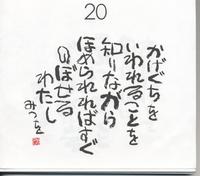 20
かげぐちを
いわれることを
知りながら
ほめられればすぐ
のぼせる
わたし
みつを